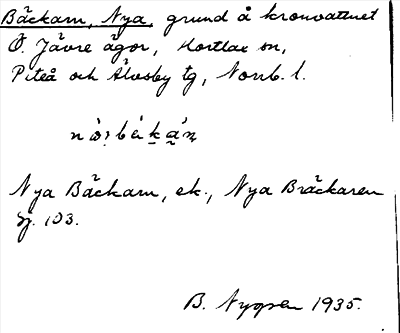 Bäckarn, Nya, grund å kronvattnet
Ö. Jävre ägor, Hortlax sn,
Piteå och Älvsby tg, Norrb. l.
Nya Bäckarn, ek., Nya Bräckaren
Sj. 103.
B. Nygren 1935.